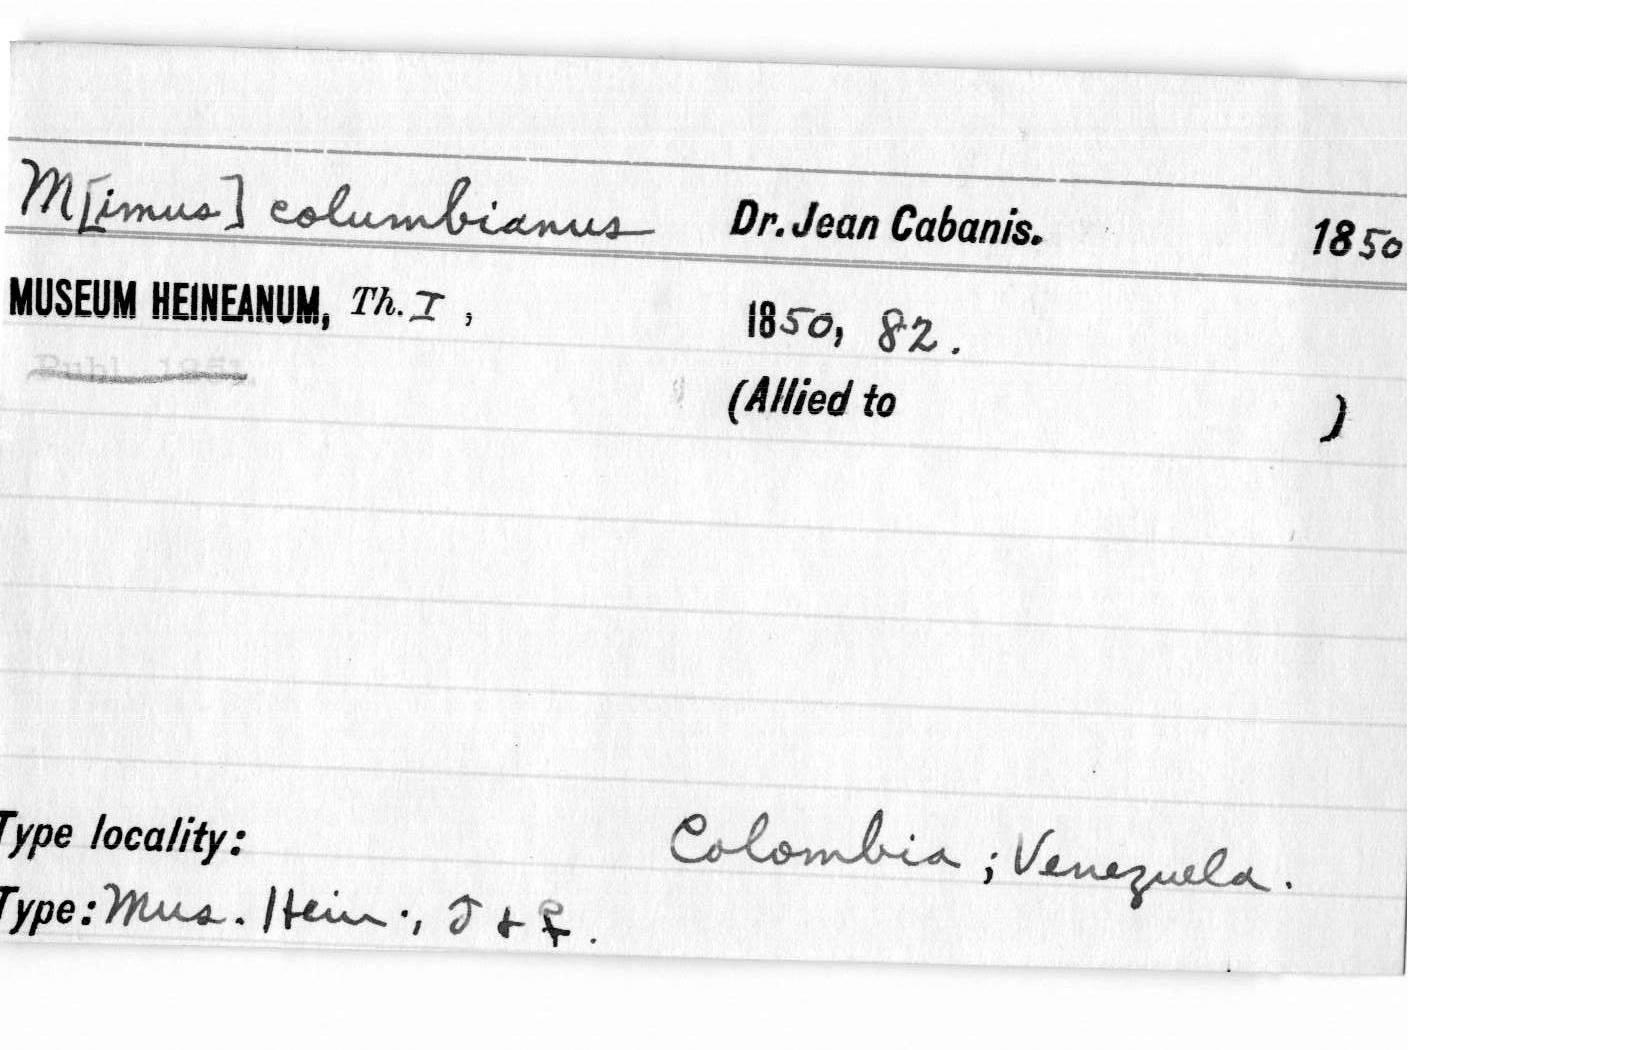 M[imus] columbianus Dr. Jean Cabanis. 1850
MUSEUM HEINEANUM, Th. I, 1850, 82.
Publ. 1851.
(Allied to )
Type locality: Colombia; Venezuela.
Type: Mus. Hein., ♂ + ♀.